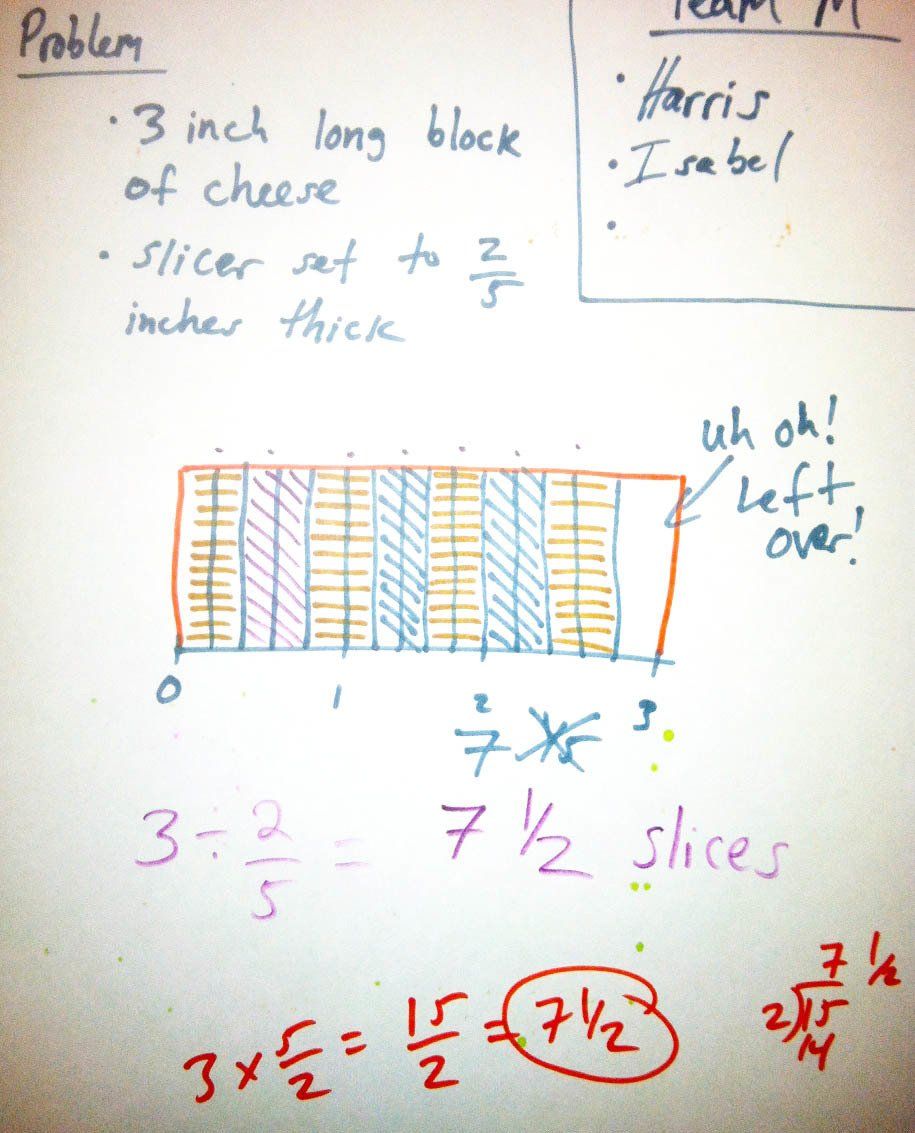 Problem
• 3 inch long block
of cheese
• slicer set to 2/5
inches thick
Team M
• Harris
• Isabel
•
uh oh!
Left
over!
0 1 2 3
7
3 ÷ 2/5 = 7 1/2 slices
3 × 5/2 = 15/2 = 7 1/2
7 1/2
2)15
14